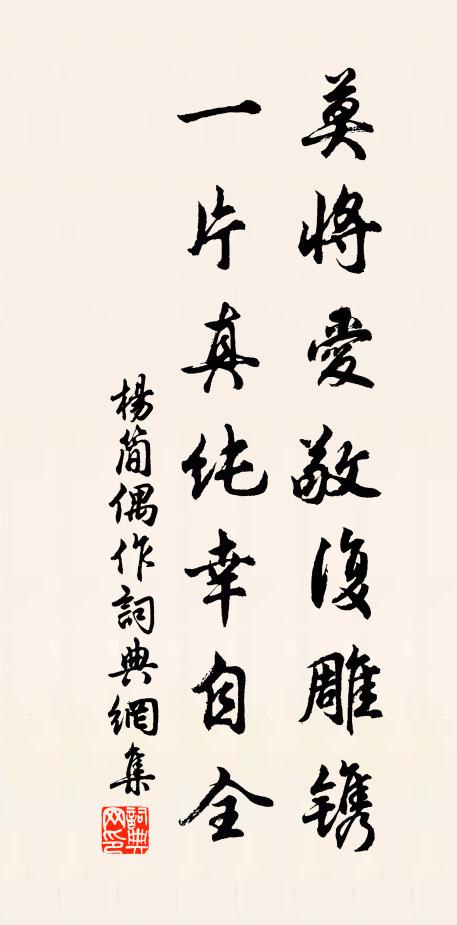 莫將愛敬復雕鐫
一片真纯幸自全
楊简偶作詞典網集
詞典网印